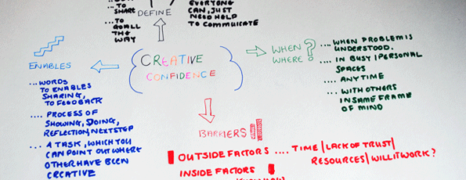 ... TO SHARE
... TO
RECALL THE
WAY
DEFINE
EVERYONE
CAN, JUST
NEED HELP
TO COMMUNICATE
ENABLES
... WORDS
TO ENABLES
SHARING,
TO FEEDBACK
... PROCESS OF
SHOWING, DOING,
REFLECTION, NEXT STEP
... A TASK, WHICH YOU
CAN POINT OUT WHERE
OTHER HAVE BEEN
CREATIVE
CREATIVE
CONFIDENCE
WHEN
WHERE ?
... WHEN PROBLEM IS
UNDERSTOOD.
... IN BUSY/PERSONAL
SPACES
... ANYTIME
... WITH OTHERS
IN SAME FRAME
OF MIND
BARRIERS
OUTSIDE FACTORS .... TIME/LACK OF TRUST/
RESOURCES/WILL IT WORK?
INSIDE FACTORS